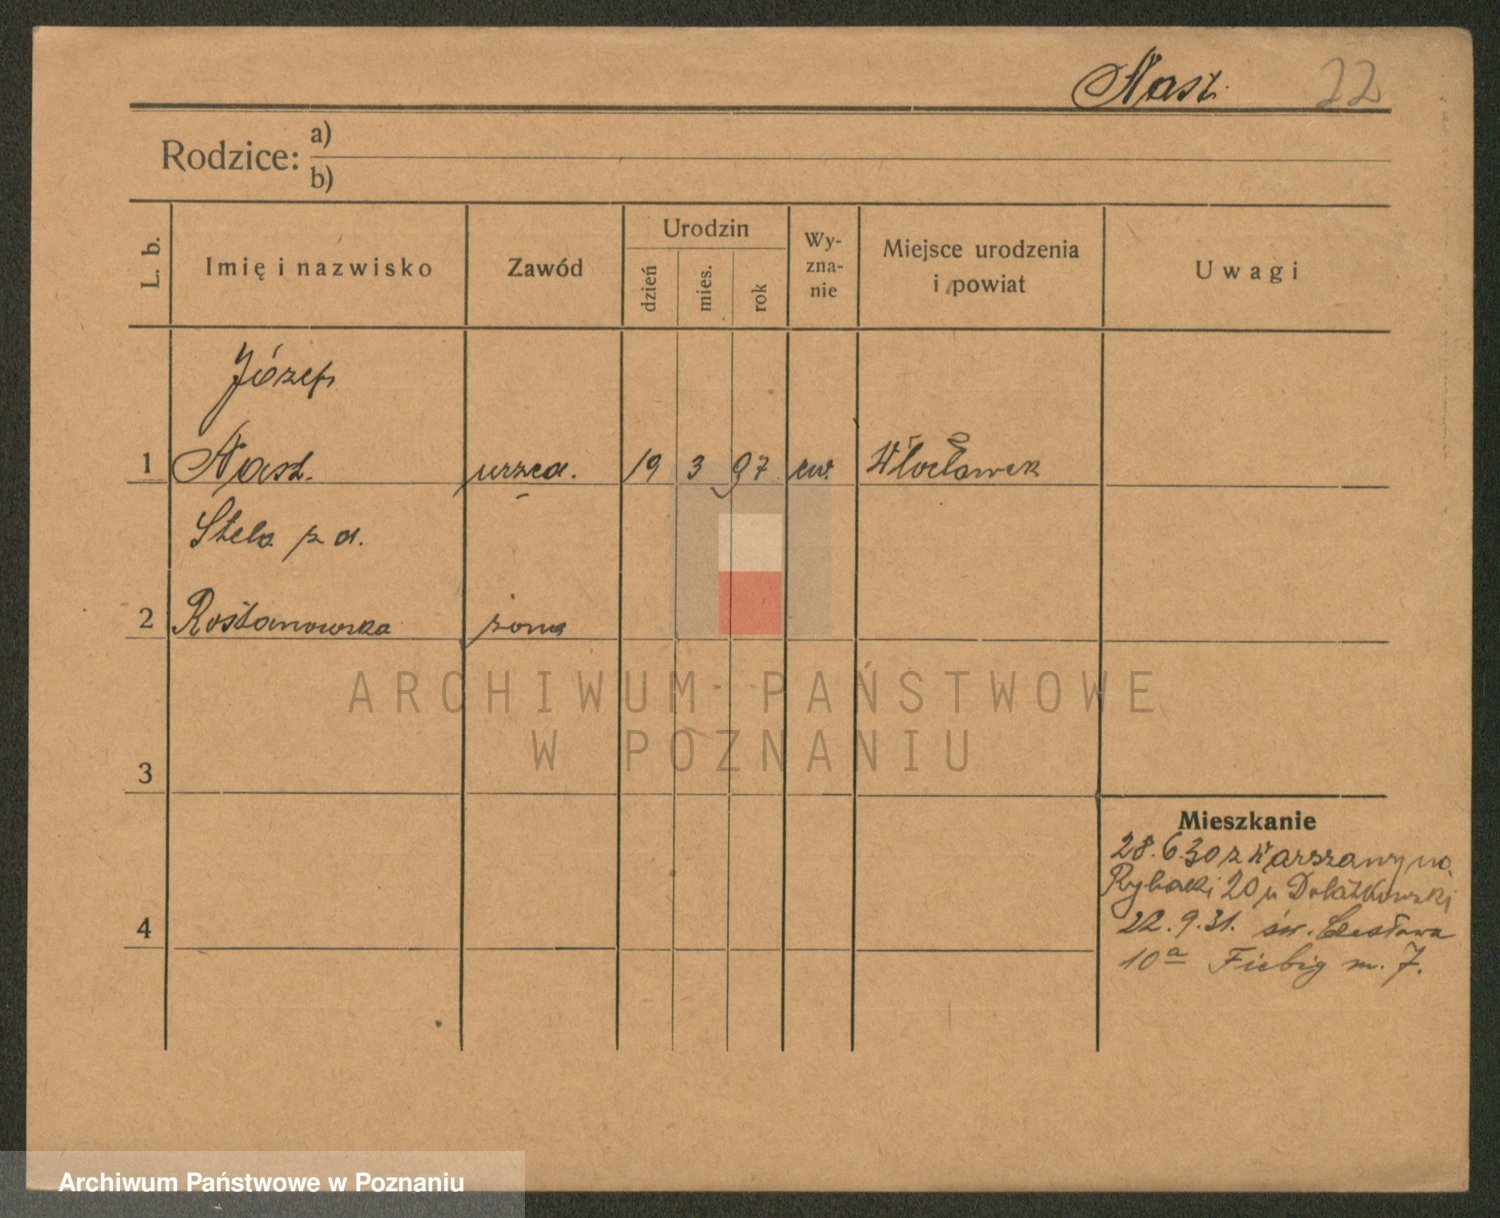 Nast. 22
Rodzice: a)
b)
L. b.
Imię i nazwisko
Zawód
Urodzin
dzień
mies.
rok
Wy-
zna-
nie
Miejsce urodzenia
i powiat
Uwagi
Józef
1 Nast. urzęd. 19 3 97 ew. Włocławek
Stela z d.
2 żona
ARCHIWUM PAŃSTWOWE
W POZNANIU
3
4
Mieszkanie
28.6.30 z Warszawy na
Rybaki 20 u
22.9.31. św. Czesława
10a Fiebig m. 7.
Archiwum Państwowe w Poznaniu